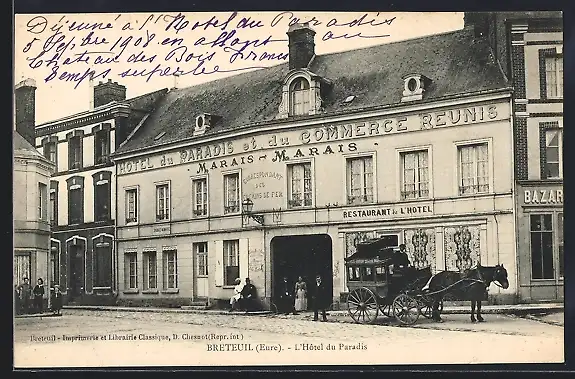 Déjeuné à l'Hotel du Paradis
5 Septbre 1908 en allant au
Château des Bois Francs
temps superbe
HOTEL DU PARADIS ET DU COMMERCE REUNIS
MARAIS - MARAIS
CORRESPONDANT
RESTAURANT DE L'HOTEL
BAZAR
Breteuil - Imprimerie et Librairie Classique, D. Chesnot (Repr. int.)
BRETEUIL (Eure). - L'Hôtel du Paradis